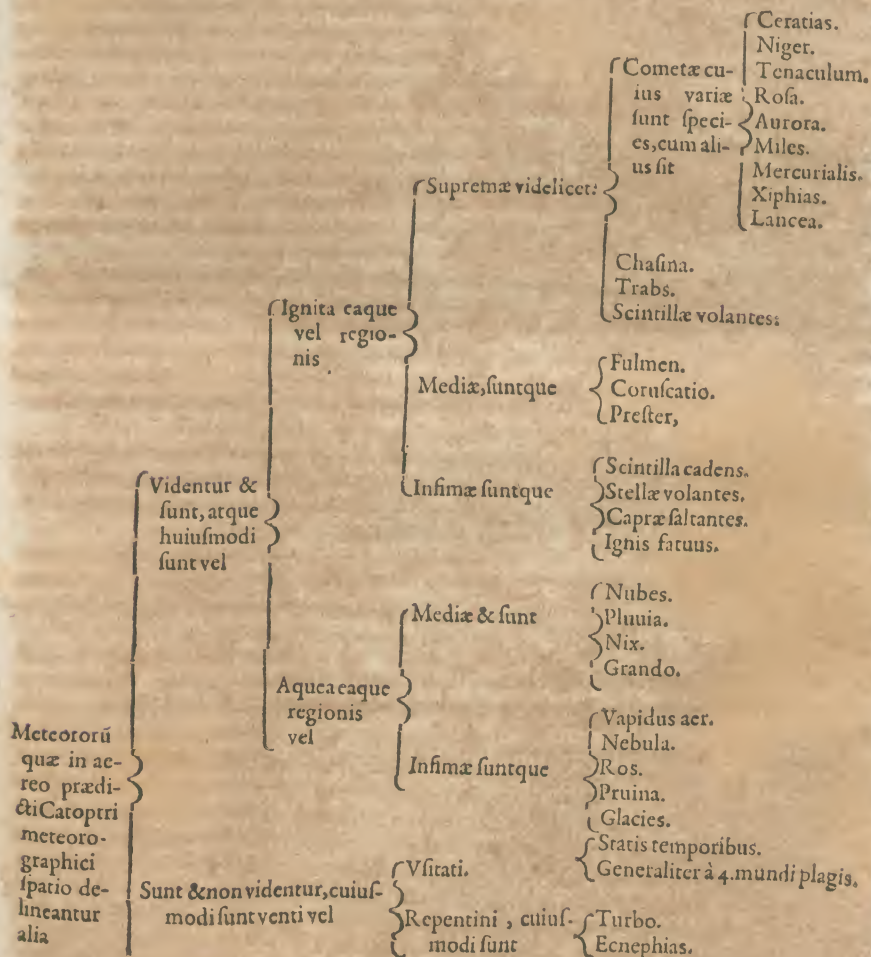 Meteororũ
quæ in ae-
reo prædi-
cti Catoptri
meteoro-
graphici
ſpatio de-
lineantur
alia
Videntur &
ſunt, atque
huiuſmodi
ſunt vel
Ignita eaque
vel regio-
nis
Supremæ videlicet:
Cometæ cu-
ius variæ
ſunt ſpeci-
es, cum ali-
us ſit
Ceratias.
Niger.
Tenaculum.
Roſa.
Aurora.
Miles.
Mercurialis.
Xiphias.
Lancea.
Chaſma.
Trabs.
Scintillæ volantes:
Mediæ, ſuntque
Fulmen.
Coruſcatio.
Preſter,
Infimæ ſuntque
Scintilla cadens.
Stellæ volantes.
Capræ ſaltantes.
Ignis fatuus.
Aquea eaque
regionis
vel
Mediæ & ſunt
Nubes.
Pluuia.
Nix.
Grando.
Infimæ ſuntque
Vapidus aer.
Nebula.
Ros.
Pruina.
Glacies.
Sunt & non videntur, cuiuſ-
modi ſunt venti vel
Vſitati.
Statis temporibus.
Generaliter à 4. mundi plagis.
Repentini, cuiuſ-
modi ſunt
Turbo.
Ecnephias.